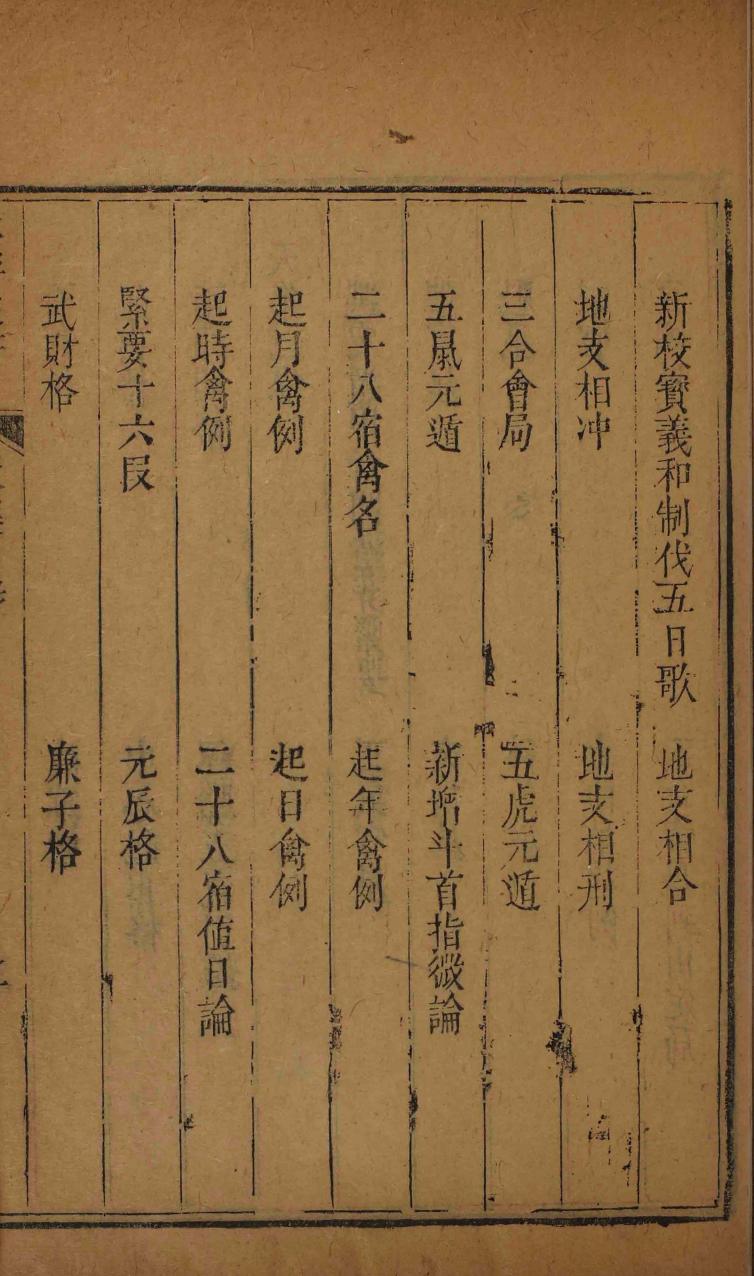 新校寳義和制伐五日歌　地支相合
地支相冲　地支相刑
三合會局　五虎元遁
五鼠元遁　新增斗首指微論
二十八宿禽名　起年禽例
起月禽例　起日禽例
起時禽例　二十八宿值日論
緊要十六段　元辰格
武財格　廉子格